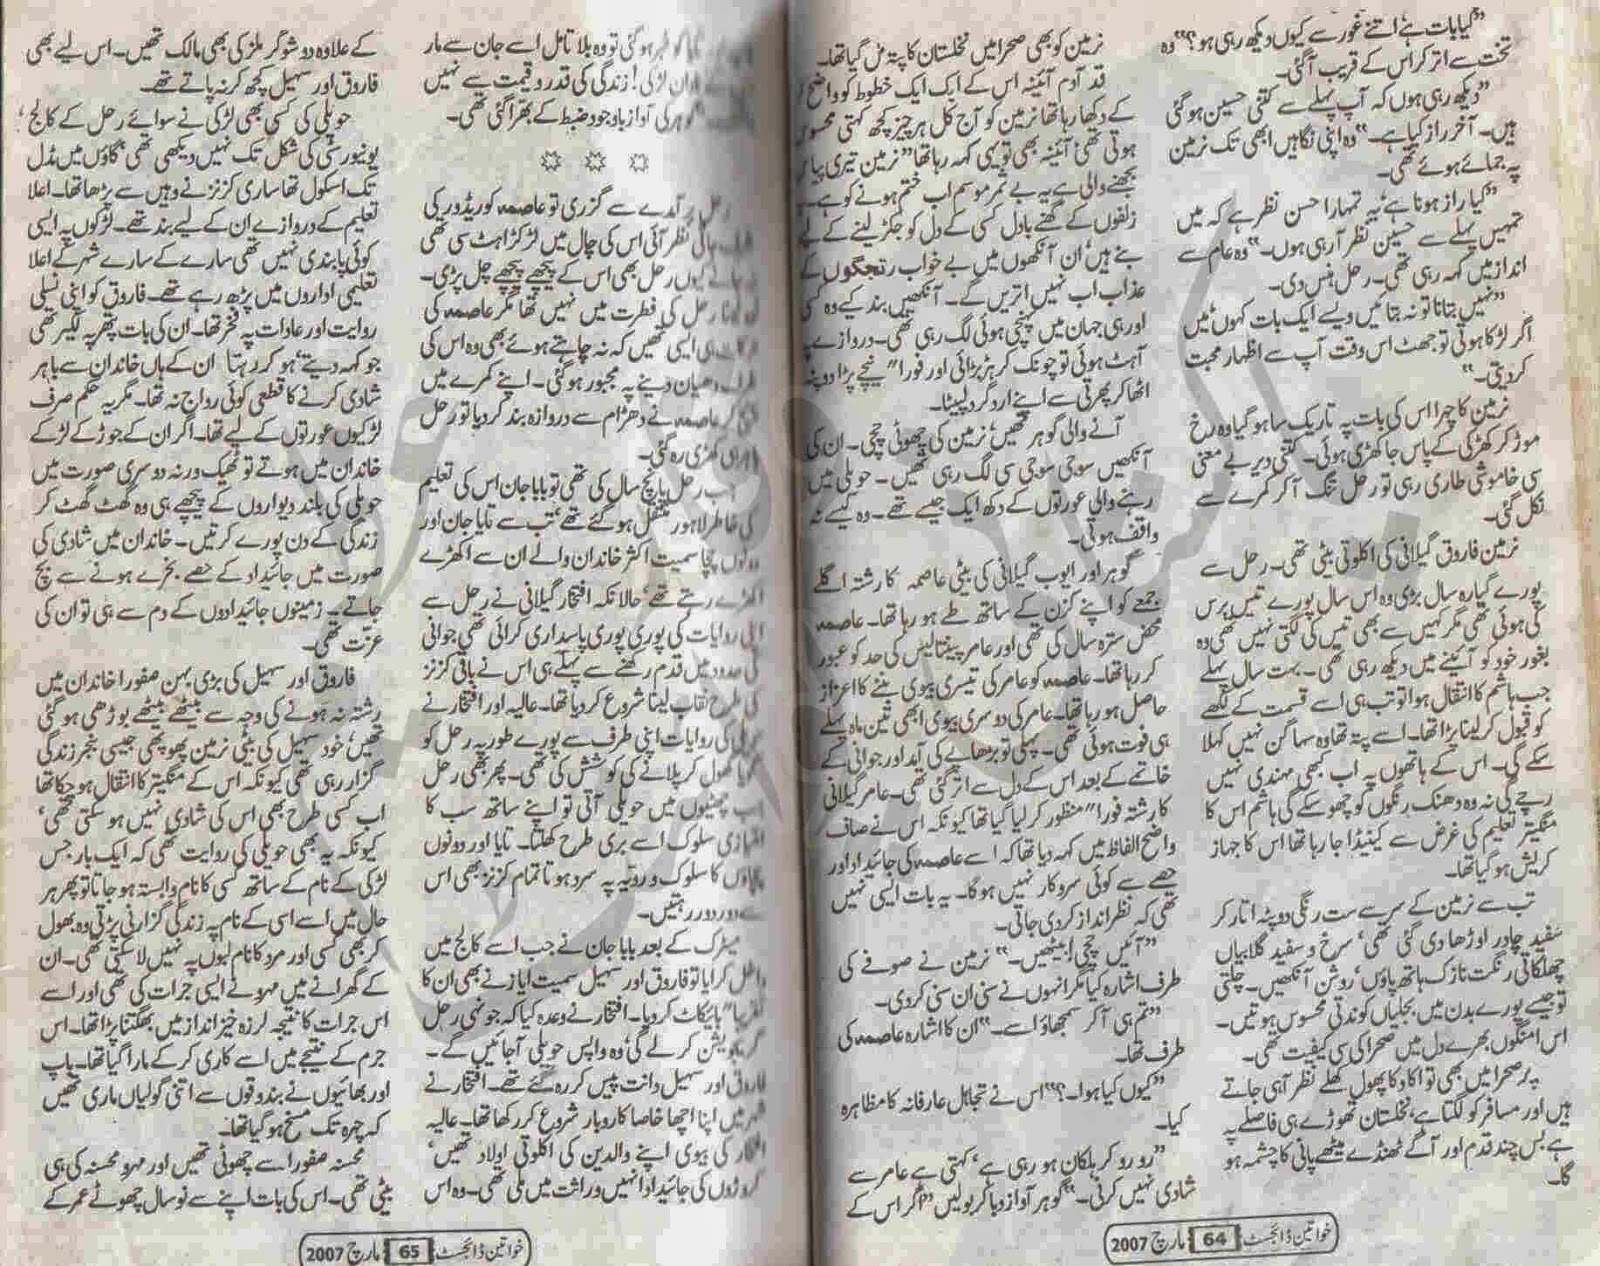 ”کیا بات ہے، اتنے غور سے کیوں دیکھ رہی ہو؟“ وہ
تخت سے اتر کر اس کے قریب آ گئی۔
”دیکھ رہی ہوں کہ آپ پہلے سے کتنی حسین ہو گئی
ہیں۔ آخر راز کیا ہے۔“ وہ اپنی نگاہیں ابھی تک نرمین
پہ جمائے ہوئے تھی۔
”کیا راز ہونا ہے، یہ تمہارا حسن نظر ہے کہ میں
تمہیں پہلے سے حسین نظر آ رہی ہوں۔“ وہ عام سے
انداز میں کہہ رہی تھی۔ رحل ہنس دی۔
”نہیں بتانا تو نہ بتائیں ویسے ایک بات کہوں، میں
اگر لڑکا ہوتی تو جھٹ اس وقت آپ سے اظہار محبت
کر دیتی۔“
نرمین کا چہرا اس کی بات پہ تاریک سا ہو گیا وہ رخ
موڑ کر کھڑکی کے پاس جا کھڑی ہوئی۔ کتنی دیر بے معنی
سی خاموشی طاری رہی تو رحل تنگ آ کر کمرے سے
نکل گئی۔
نرمین فاروق گیلانی کی اکلوتی بیٹی تھی۔ رحل سے
پورے گیارہ سال بڑی وہ اس سال پورے تیس برس
کی ہوئی تھی مگر کہیں سے بھی تیس کی لگتی نہیں تھی وہ
بغور خود کو آئینے میں دیکھ رہی تھی۔ بہت سال پہلے
جب ہاشم کا انتقال ہوا تو تب ہی اسے قسمت کے لکھے
کو قبول کر لینا پڑا تھا۔ اسے پتہ تھا وہ سہاگن نہیں کہلا
سکے گی۔ اس کے ہاتھوں پہ اب کبھی مہندی نہیں
رچے گی نہ وہ دھنک رنگوں کو چھو سکے گی ہاشم اس کا
منگیتر تعلیم کی غرض سے کینیڈا جا رہا تھا اس کا جہاز
کریش ہو گیا تھا۔
تب سے نرمین کے سر سے ست رنگی دوپٹہ اتار کر
سفید چادر اوڑھا دی گئی تھی، سرخ و سفید گلابیاں
چھلکاتی رنگت نازک ہاتھ پاؤں، روشن آنکھیں۔ چلتی
تو جیسے پورے بدن میں بجلیاں کوندتی محسوس ہوتیں۔
اس امنگوں بھرے دل میں صحرا کی سی کیفیت تھی۔
پر صحرا میں بھی تو اکا دکا پھول کھلے نظر آ ہی جاتے
ہیں اور مسافر کو لگتا ہے، نخلستان تھوڑے ہی فاصلے پہ
ہے بس چند قدم اور آگے ٹھنڈے میٹھے پانی کا چشمہ ہو
گا۔
نرمین کو بھی صحرا میں نخلستان کا پتہ مل گیا تھا۔
قد آدم آئینہ اس کے ایک ایک خطوط کو واضح
کے دکھا رہا تھا نرمین کو آج کل ہر چیز کچھ کہتی محسوس
ہوتی تھی، آئینہ بھی تو یہی کہہ رہا تھا ”نرمین تیری پیاس
بجھنے والی ہے یہ بے ثمر موسم اب ختم ہونے کو ہے۔
زلفوں کے گھنے بادل کسی کے دل کو جکڑ لینے کے لیے
بنے ہیں، ان آنکھوں میں بے خواب رتجگوں کے
عذاب اب نہیں اتریں گے۔ آنکھیں بند کیے وہ کسی
اور ہی جہان میں پہنچی ہوئی لگ رہی تھی۔ دروازے پہ
آہٹ ہوئی تو چونک کر ہڑبڑائی اور فورا” نیچے پڑا دوپٹہ
اٹھا کر پھرتی سے اپنے ارد گرد لپیٹا۔
آنے والی گوہر تھیں، نرمین کی چھوٹی چچی۔ ان کی
آنکھیں سوجی سوجی سی لگ رہی تھیں۔ حویلی میں
رہنے والی عورتوں کے دکھ ایک جیسے تھے۔ وہ کیسے نہ
واقف ہوتی۔
گوہر اور ایوب گیلانی کی بیٹی عاصمہ کا رشتہ اگلے
جمعے کو اپنے کزن کے ساتھ طے ہو رہا تھا۔ عاصمہ
محض سترہ سال کی تھی اور عامر پینتالیس کی حد کو عبور
کر رہا تھا۔ عاصمہ کو عامر کی تیسری بیوی بننے کا اعزاز
حاصل ہو رہا تھا۔ عامر کی دوسری بیوی ابھی تین ماہ پہلے
ہی فوت ہوئی تھی۔ پہلی تو بڑھاپے کی آمد اور جوانی کے
خاتمے کے بعد اس کے دل سے اتر گئی تھی۔ عامر گیلانی
کا رشتہ فورا” منظور کر لیا گیا تھا کیونکہ اس نے صاف
واضح الفاظ میں کہہ دیا تھا کہ اسے عاصمہ کی جائیداد اور
حصے سے کوئی سروکار نہیں ہو گا۔ یہ بات ایسی نہیں
تھی کہ نظر انداز کر دی جاتی۔
”آئیں چچی! بیٹھیں۔“ نرمین نے صوفے کی
طرف اشارہ کیا مگر انہوں نے سنی ان سنی کر دی۔
”تم ہی آ کر سمجھاؤ اسے۔“ ان کا اشارہ عاصمہ کی
طرف تھا۔
”کیوں کیا ہوا۔؟“ اس نے تجاہل عارفانہ کا مظاہرہ
کیا۔
”رو رو کر ہلکان ہو رہی ہے، کہتی ہے عامر سے
شادی نہیں کرنی۔“ گوہر آواز دبا کر بولیں ”اگر اس کے
خواتین ڈائجسٹ 64 مارچ 2007
ہو گئی تو وہ بلا تامل اسے جان سے مار
لڑکی! زندگی کی قدر و قیمت سے نہیں
گوہر کی آواز باوجود ضبط کے بھرا گئی تھی۔
رحل برآمدے سے گزری تو عاصمہ کوریڈور کی
نظر آئی اس کی چال میں لڑکڑاہٹ سی تھی
کیوں رحل بھی اس کے پیچھے پیچھے چل پڑی۔
رحل کی فطرت میں نہیں تھا مگر عاصمہ کی
ہی ایسی تھیں کہ نہ چاہتے ہوئے بھی وہ اس کی
دھیان دینے پہ مجبور ہو گئی۔ اپنے کمرے میں
عاصمہ نے دھڑام سے دروازہ بند کر دیا تو رحل
کھڑی رہ گئی۔
جب رحل پانچ سال کی تھی تو بابا جان اس کی تعلیم
کی خاطر لاہور منتقل ہو گئے تھے، تب سے تایا جان اور
دونوں چچا سمیت اکثر خاندان والے ان سے اکھڑے
اکھڑے رہتے تھے، حالانکہ افتخار گیلانی نے رحل سے
روایات کی پوری پوری پاسداری کرائی تھی جوانی
کی حدود میں قدم رکھنے سے پہلے ہی اس نے باقی کزنز
کی طرح نقاب لینا شروع کر دیا تھا۔ عالیہ اور افتخار نے
حویلی کی روایات اپنی طرف سے پورے طور پہ رحل کو
گھول کر پلانے کی کوشش کی تھی۔ پھر بھی رحل
جب چھٹیوں میں حویلی آتی تو اپنے ساتھ سب کا
امتیازی سلوک اسے بری طرح کھلتا۔ تایا اور دونوں
چچاؤں کا سلوک و رویہ پہ سرد ہوتا تمام کزنز بھی اس
سے دور دور رہتیں۔
میٹرک کے بعد بابا جان نے جب اسے کالج میں
داخل کرایا تو فاروق اور سہیل سمیت ایاز نے بھی ان کا
تقریبا” بائیکاٹ کر دیا۔ افتخار نے وعدہ کیا کہ جونہی رحل
گریجویشن کر لے گی، وہ واپس حویلی آ جائیں گے۔
فاروق اور سہیل دانت پیس کر رہ گئے تھے۔ افتخار نے
شہر میں اپنا اچھا خاصا کاروبار شروع کر رکھا تھا۔ عالیہ
افتخار کی بیوی اپنے والدین کی اکلوتی اولاد تھیں،
کروڑوں کی جائیداد انہیں وراثت میں ملی تھی۔ وہ اس
کے علاوہ دو شوگر ملز کی بھی مالک تھیں۔ اس لیے بھی
فاروق اور سہیل کچھ کر نہ پاتے تھے۔
حویلی کی کسی بھی لڑکی نے سوائے رحل کے کالج،
یونیورسٹی کی شکل تک نہیں دیکھی تھی، گاؤں میں مڈل
تک اسکول تھا ساری کزنز نے وہیں سے پڑھا تھا۔ اعلا
تعلیم کے دروازے ان کے لیے بند تھے۔ لڑکوں پہ ایسی
کوئی پابندی نہیں تھی سارے کے سارے شہر کے اعلا
تعلیمی اداروں میں پڑھ رہے تھے۔ فاروق کو اپنی نسلی
روایت اور عادات پہ فخر تھا۔ ان کی بات پتھر پہ لکیر تھی
جو کہہ دیتے، ہو کر رہتا ان کے ہاں خاندان سے باہر
شادی کرنے کا قطعی کوئی رواج نہ تھا۔ مگر یہ حکم صرف
لڑکیوں عورتوں کے لیے تھا۔ اگر ان کے جوڑ کے لڑکے
خاندان میں ہوتے تو ٹھیک ورنہ دوسری صورت میں
حویلی کی بلند دیواروں کے پیچھے ہی وہ گھٹ گھٹ کر
زندگی کے دن پورے کرتیں۔ خاندان میں شادی کی
صورت میں جائیداد کے حصے بخرے ہونے سے بچ
جاتے۔ زمینوں جائیدادوں کے دم سے ہی تو ان کی
عزت تھی۔
فاروق اور سہیل کی بڑی بہن صفورا خاندان میں
رشتہ نہ ہونے کی وجہ سے بیٹھے بیٹھے بوڑھی ہو گئی
تھیں، خود سہیل کی بیٹی نرمین پھوپھی جیسی بنجر زندگی
گزار رہی تھی کیونکہ اس کے منگیتر کا انتقال ہو چکا تھا
اب کسی طرح بھی اس کی شادی نہیں ہو سکتی تھی،
کیونکہ یہ بھی حویلی کی روایت تھی کہ ایک بار جس
لڑکی کے نام کے ساتھ کسی کا نام وابستہ ہو جاتا تو پھر ہر
حال میں اسے اسی کے نام پہ زندگی گزارنی پڑتی وہ بھول
کر بھی کسی اور مرد کا نام لبوں پہ نہیں لا سکتی تھی۔ ان
کے گھرانے میں مہرو نے ایسی جرات کی تھی اور اسے
اس جرات کا نتیجہ لرزہ خیز انداز میں بھگتنا پڑا تھا۔ اس
جرم کے نتیجے میں اسے کاری کر کے مارا گیا تھا۔ باپ
اور بھائیوں نے بندوقوں سے اتنی گولیاں ماری تھیں
کہ چہرہ تک مسخ ہو گیا تھا۔
محسنہ صفورا سے چھوٹی تھیں اور مہرو محسنہ کی ہی
بیٹی تھی۔ اس کی بات اپنے سے نو سال چھوٹے عمر کے
خواتین ڈائجسٹ 65 مارچ 2007